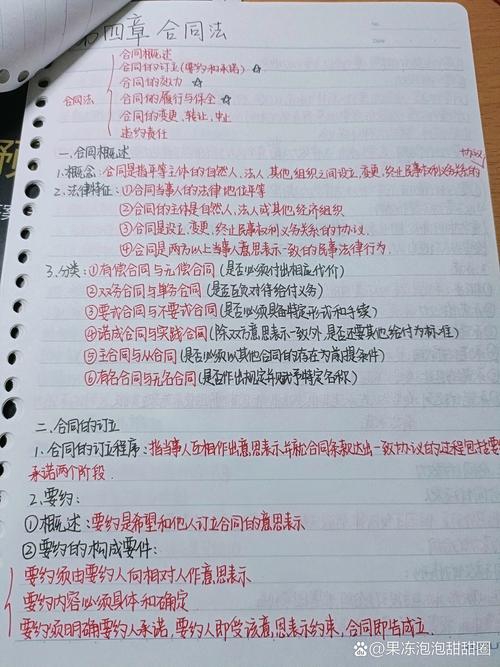 第四章 合同法
合同法
合同概述
合同的订立(要约和承诺) ☆
合同的效力 ☆
合同的履行与保全 ☆
合同的变更、转让、中止
违约责任
一、合同概述
协议
1.概念:合同是指平等主体的自然人、法人、其他组织之间设立、变更、终止民事权利义务关系的
2.法律特征:①合同当事人的法律地位平等
②合同的主体是自然人、法人或其他经济组织
③合同是设立、变更、终止民事权利义务关系的协议
④合同是两方以上当事人意思表示一致的民事法律行为.
3.分类:①有偿合同与无偿合同(是否必须付出相应代价)
②双务合同与单务合同(是否互负对待给付义务)
③要式合同与不要式合同(是否必须具备特定形式和手续)
④诺成合同与实践合同(除双方意思表示一致外,是否还要其他给付为标准)
⑤主合同与从合同(是否必须以其他合同的存在为前提条件)
⑥有名合同与无名合同(是否作出规定并赋予特定名称)
二、合同的订立
1.合同的订立程序:指当事人互相作出意思表示并就合同条款达出一致协议的过程包括要约
承诺两个阶段.
2.要约:
①概述:要约是希望和他人订立合同的意思表示
②要约的构成要件:
要约须由要约人向相对人作意思表示
要约内容必须具体和确定
要约须明确要约人承诺,要约人即受该意思表示约束,合同即告成立.
@果冻泡泡甜甜圈